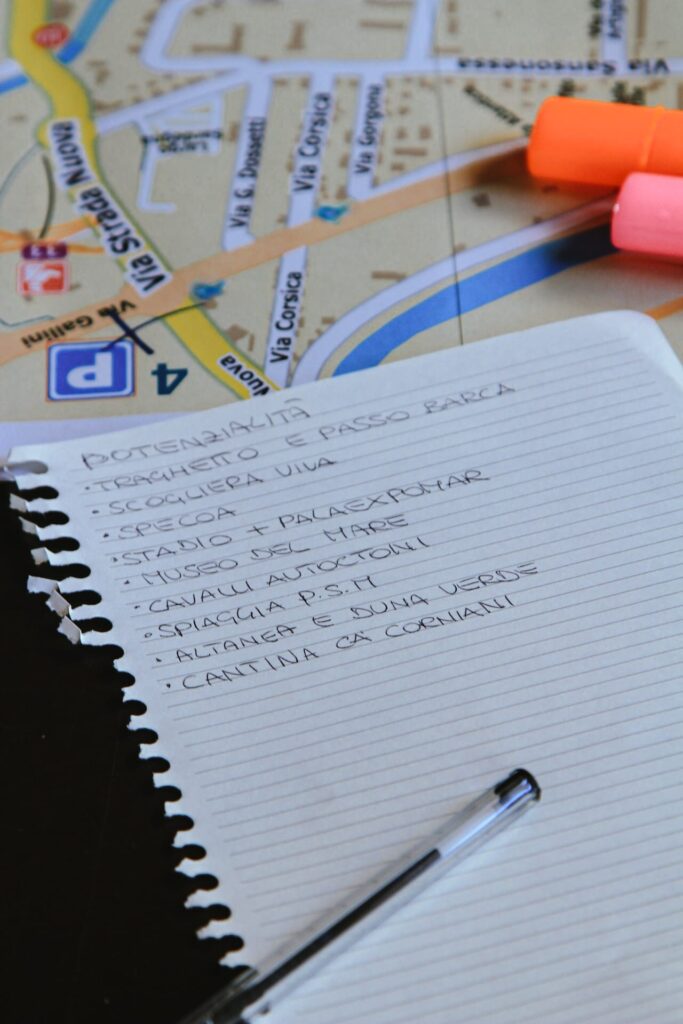 Via Sansonessa
Via Strada Nuova
Via G. Dossetti
Via Corsica
Via Gorgona
Via Corsica
Via Gallini
P
4
Nuova
POTENZIALITÀ
• TRAGHETTO E PASSO BARCA
• SCOGLIERA VIVA
• SPECOA
• STADIO + PALAEXPOMAR
• MUSEO DEL MARE
• CAVALLI AUTOCTONI
• SPIAGGIA P.S.M
• ALTANEA E DUNA VERDE
• CANTINA CA' CORNIANI